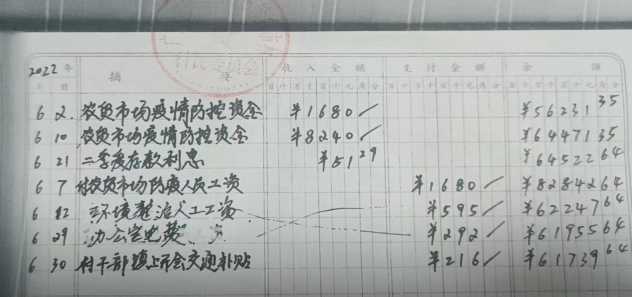 村民委员会
2022年 摘要 收入金额 支付金额 余额
月 日 百十万千百十元角分 百十万千百十元角分 百十万千百十元角分
6 2. 农贸市场疫情防控资金 ¥1680/ ¥5623135
6 10 农贸市场疫情防控资金 ¥8240/ ¥6447135
6 21 二季度存款利息 ¥5129 ¥6452264
6 7 付农贸市场防疫人员工资 ¥1680/ ¥6284264
6 12 环境整治人工工资 ¥595/ ¥6224764
6 29 办公室电费 ¥292/ ¥6195564
6 30 村干部镇上开会交通补贴 ¥216/ ¥6173964